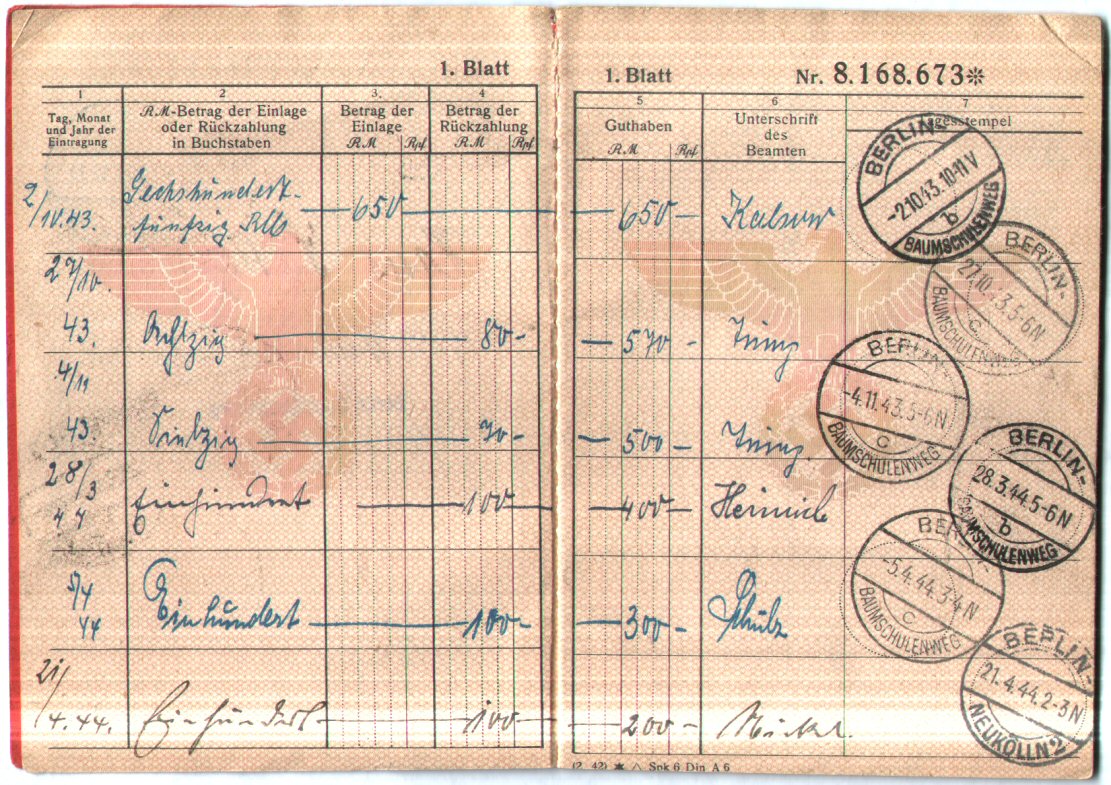 1. Blatt
1
Tag, Monat
und Jahr der
Eintragung
2
RM-Betrag der Einlage
oder Rückzahlung
in Buchstaben
3.
Betrag der
Einlage
RM Rpf
4
Betrag der
Rückzahlung
RM Rpf
2/10.43. Sechshundert-
fünfzig RM — 650 —
27/10.
43. Achtzig — 80 -
4/11
43. Siebzig — 70 -
28/3
44 Einhundert — 100 -
5/4
44 Einhundert — 100 -
21/
4.44. Einhundert — 100 —
1. Blatt
Nr. 8.168.673*
5
Guthaben
RM Rpf
6
Unterschrift
des
Beamten
7
Tagesstempel
— 650 - Kalsow
BERLIN-
-2.10.43.10-11V
b
BAUMSCHULENWEG
— 570 -
BERLIN-
27.10.43.5-6N
c
BAUMSCHULENWEG
— 500 -
BERLIN-
-4.11.43.5-6N
c
BAUMSCHULENWEG
— 400 -
BERLIN-
28.3.44.5-6N
b
BAUMSCHULENWEG
— 300 - Schulz
BERLIN-
-5.4.44.3-4N
c
BAUMSCHULENWEG
— 200 -
BERLIN-
21.4.44.2-3N
NEUKÖLLN 2
(2. 42) ✶ △ Spk 6 Din A 6